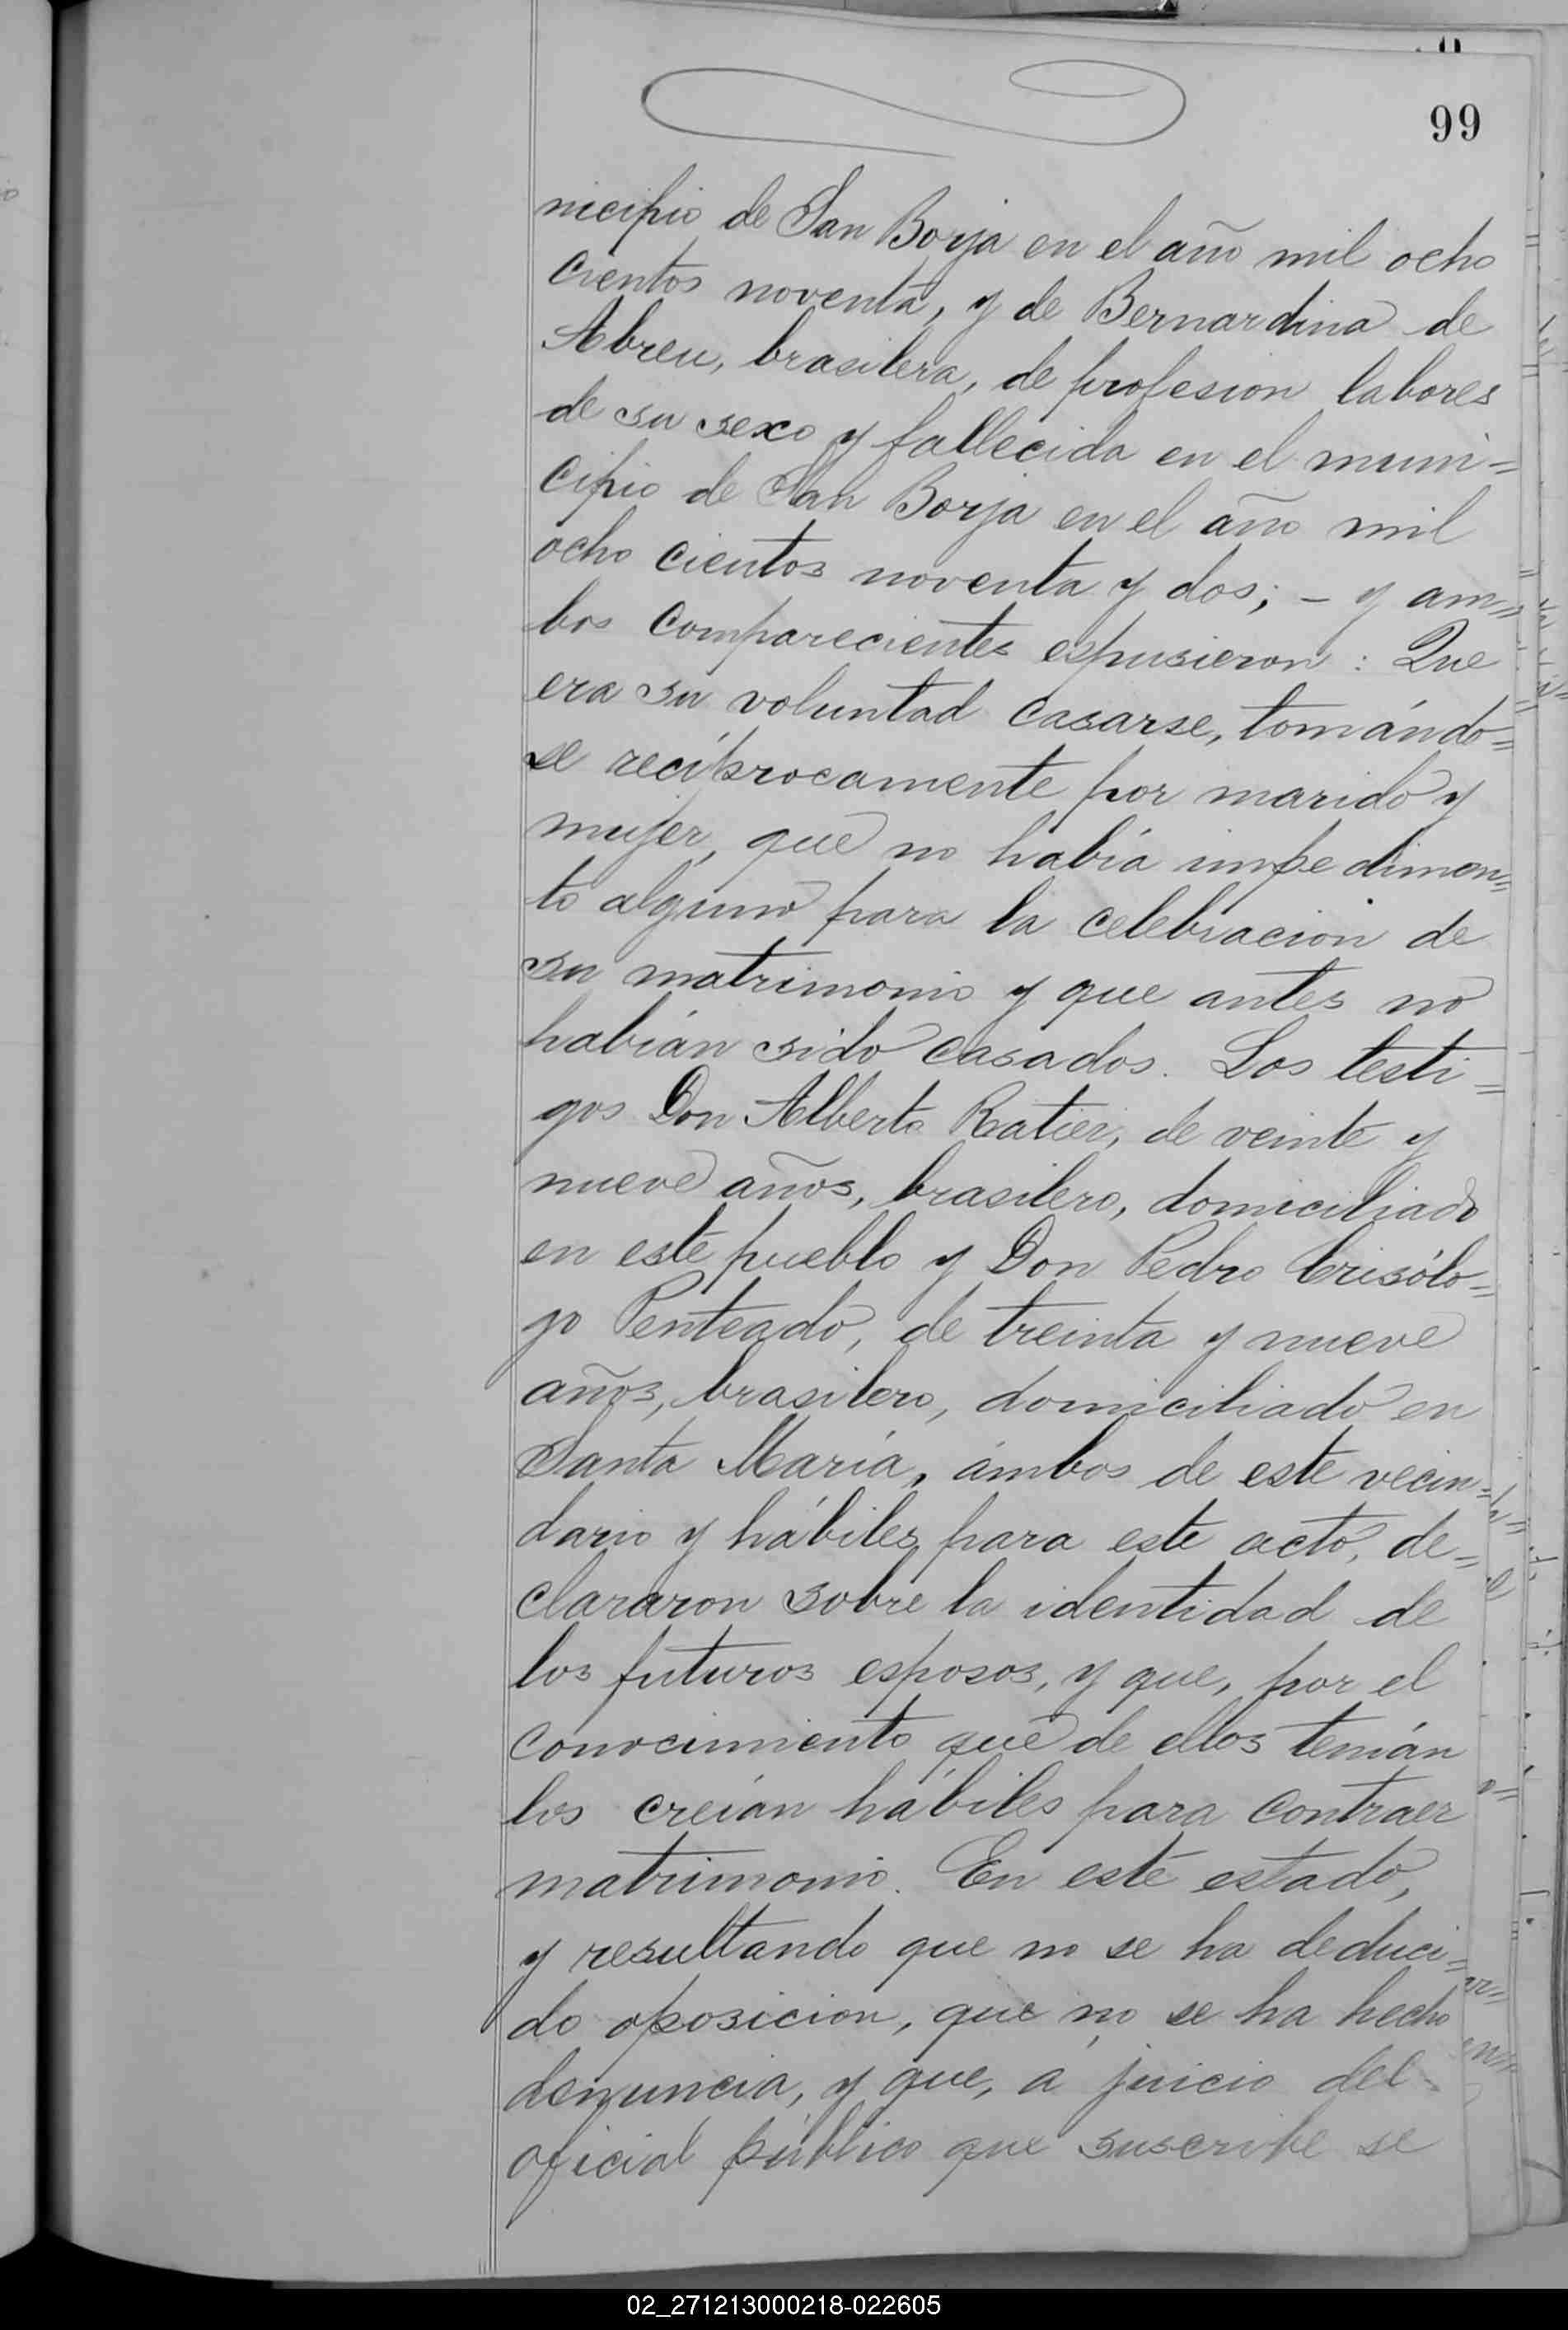 99
nicipio de San Borja en el año mil ocho
cientos noventa, y de Bernardina de
Abreu, brasilera, de profesion labores
de su sexo y fallecida en el muni=
cipio de San Borja en el año mil
ocho cientos noventa y dos; - y am=
bos comparecientes espusieron: Que
era su voluntad casarse, tomándo=
se recíprocamente por marido y
mujer, que no había impedimen=
to alguno para la celebracion de
su matrimonio y que antes no
habían sido casados. Los testi=
gos Don Alberto Ratier, de veinte y
nueve años, brasilero, domiciliado
en este pueblo y Don Pedro Crisólo=
go Penteado, de treinta y nueve
años, brasilero, domiciliado en
Santa María, ámbos de este vecin=
dario y hábiles para este acto, de=
clararon sobre la identidad de
los futuros esposos, y que, por el
conocimiento que de ellos tenían
los creían hábiles para contraer
matrimonio. En este estado,
y resultando que no se ha deduci=
do oposicion, que no se ha hecho
denuncia, y que, á juicio del
oficial público que suscribe se
02_271213000218-022605